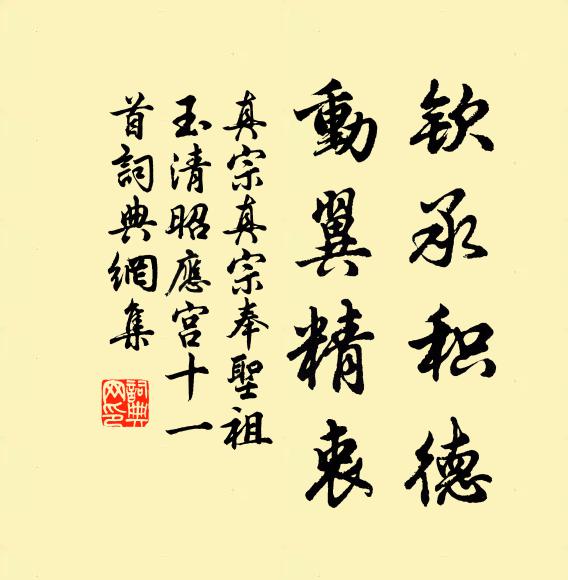 欽承积德
動翼精衷
真宗真宗奉聖祖
玉清昭應宫十一
首詞典網集
詞典
网印